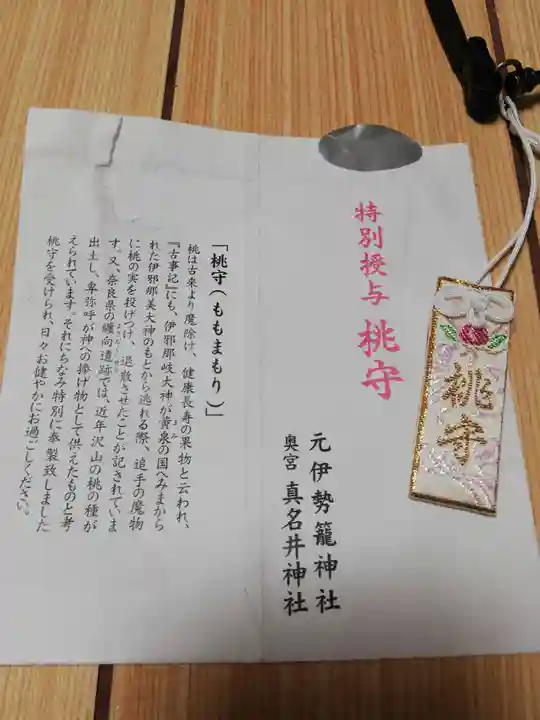 特別授与 桃守
元伊勢籠神社
奥宮 真名井神社
「桃守（ももまもり）」
桃は古来より魔除け、健康長寿の果物と云われ、
『古事記』にも、伊邪那岐大神が黄泉の国へみまから
れた伊邪那美大神のもとから逃れる際、追手の魔物
に桃の実を投げつけ、退散させたことが記されていま
す。又、奈良県の纏向遺跡では、近年沢山の桃の種が
出土し、卑弥呼が神への捧げ物として供えたものと考
えられています。それにちなみ特別に奉製致しました
桃守を受けられ、日々お健やかにお過ごしください。
桃守